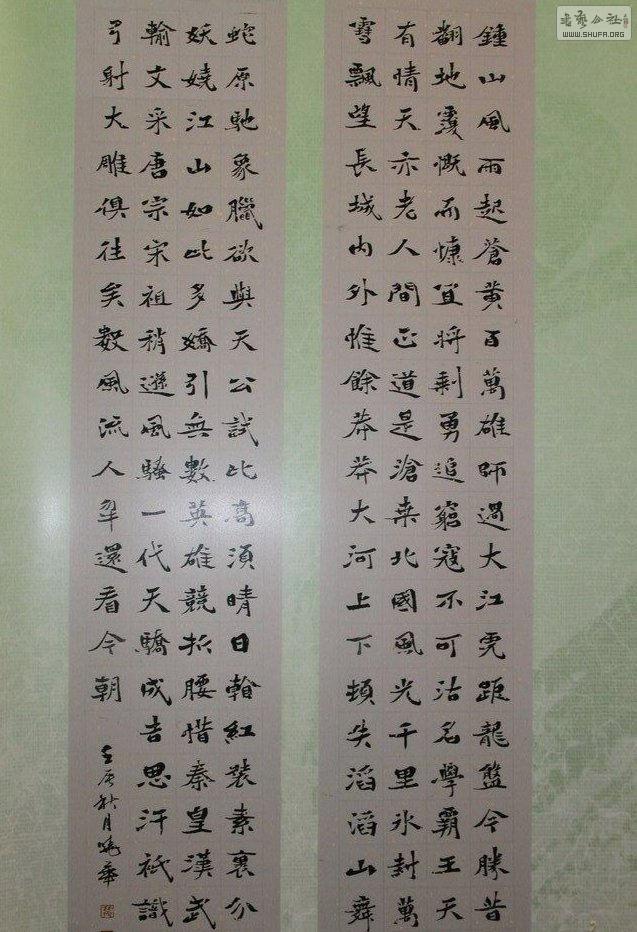 鍾山風雨起蒼黄百萬雄師過大江虎距龍盤今勝昔
翻地覆慨而慷宜將剩勇追窮寇不可沽名學霸王天
有情天亦老人間正道是滄桑北國風光千里冰封萬
雪飄望長城内外惟餘莽莽大河上下頓失滔滔山舞
蛇原馳象臘欲與天公試比高須晴日翰紅裝素裹分
妖嬈江山如此多嬌引無數英雄競折腰惜秦皇漢武
輸文采唐宗宋祖稍遜風騷一代天驕成吉思汗祇識
弓射大雕俱往矣數風流人還看今朝
壬辰秋月曉華
WWW.SHUFA.ORG